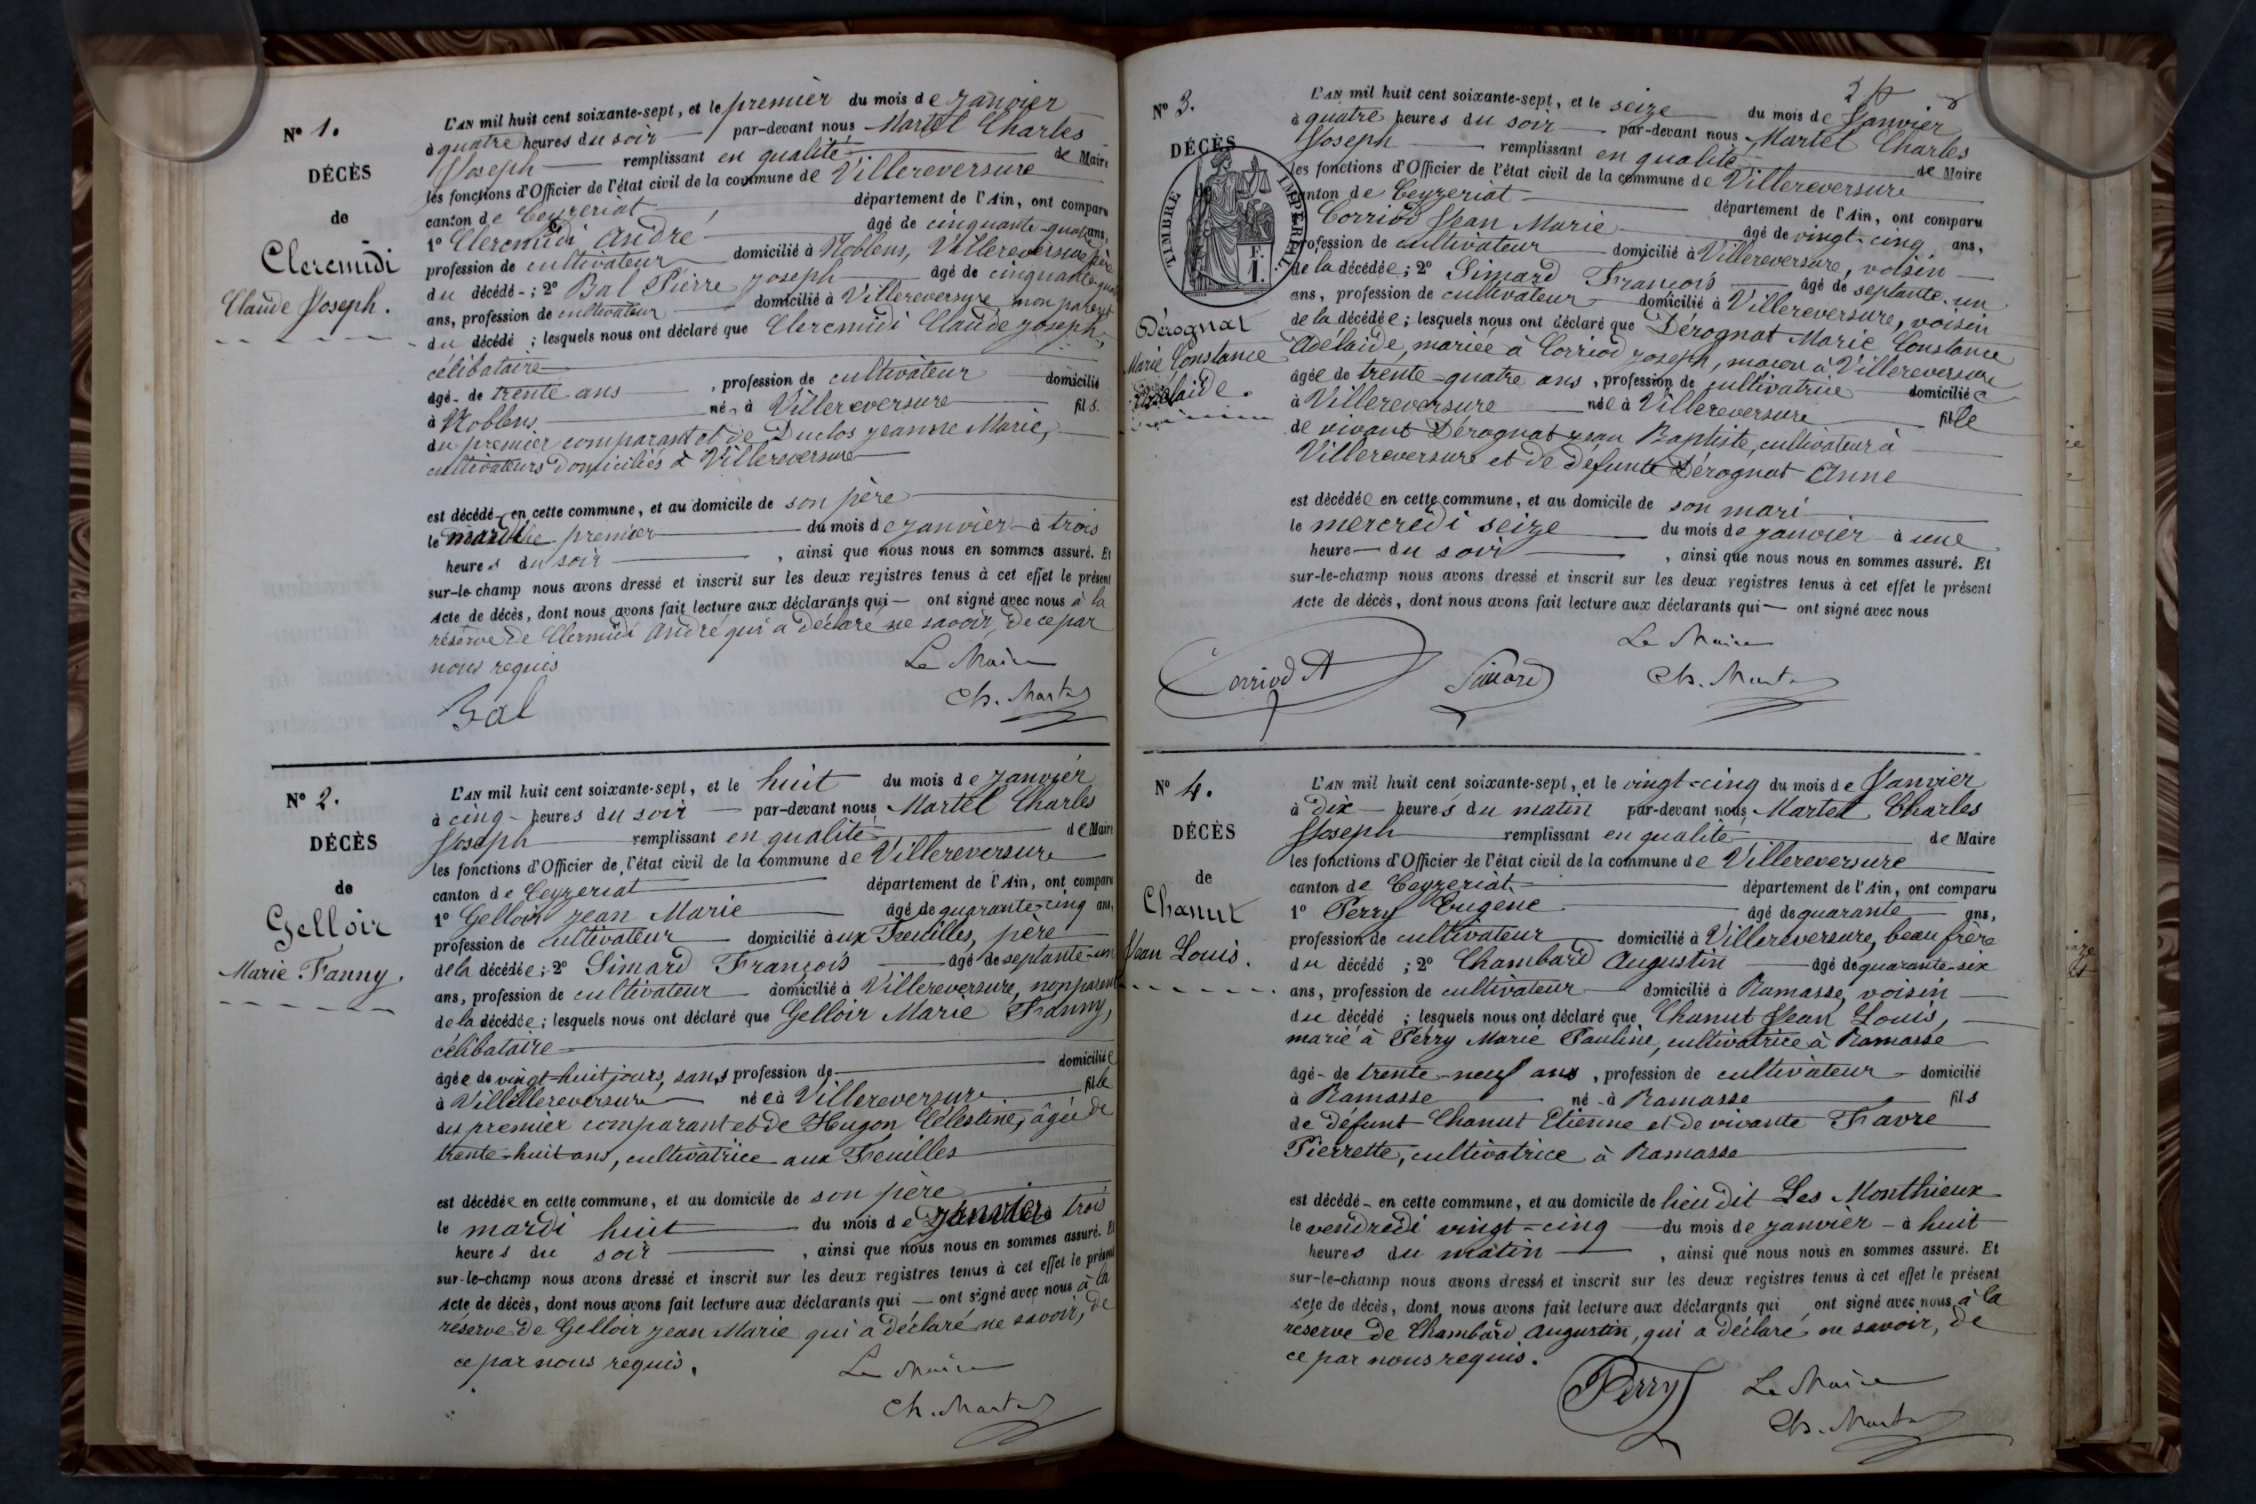 N° 1.
DÉCÈS
de
Clercmidi
Claude Joseph.
L'AN mil huit cent soixante-sept, et le premier du mois de janvier
à quatre heures du soir par-devant nous Martel Charles
Joseph remplissant en qualité de Maire
les fonctions d'Officier de l'état civil de la commune de Villereversure
canton de Ceyzeriat département de l'Ain, ont comparu
1° Clercmidi André âgé de cinquante-quatre ans,
profession de cultivateur domicilié à Noblens, Villereversure père
du décédé ; 2° Bal Pierre Joseph âgé de cinquante-quatre
ans, profession de cultivateur domicilié à Villereversure non parent
du décédé ; lesquels nous ont déclaré que Clercmidi Claude Joseph,
célibataire
âgé de trente ans, profession de cultivateur domicilié
à Noblens né à Villereversure fils
du premier comparant et de Duclos Jeanne Marie,
cultivateurs domiciliés à Villereversure
est décédé en cette commune, et au domicile de son père
le mardi premier du mois de janvier à trois
heures du soir, ainsi que nous nous en sommes assuré. Et
sur-le-champ nous avons dressé et inscrit sur les deux registres tenus à cet effet le présent
Acte de décès, dont nous avons fait lecture aux déclarants qui ont signé avec nous à la
réserve de Clermidi André qui a déclaré ne savoir, de ce par
nous requis
Le Maire
Bal Ch. Martel
N° 2.
DÉCÈS
de
Gelloir
Marie Fanny.
L'AN mil huit cent soixante-sept, et le huit du mois de janvier
à cinq heures du soir par-devant nous Martel Charles
Joseph remplissant en qualité de Maire
les fonctions d'Officier de l'état civil de la commune de Villereversure
canton de Ceyzeriat département de l'Ain, ont comparu
1° Gelloir Jean Marie âgé de quarante-cinq ans,
profession de cultivateur domicilié aux Feuilles, père
de la décédée ; 2° Simard François âgé de septante-un
ans, profession de cultivateur domicilié à Villereversure, non parent
de la décédée ; lesquels nous ont déclaré que Gelloir Marie Fanny,
célibataire
âgée de vingt-huit jours, sans profession de domiciliée
à Villellereversure née à Villereversure fille
du premier comparant et de Hugon Célestine, âgée de
trente-huit ans, cultivatrice aux Feuilles
est décédée en cette commune, et au domicile de son père
le mardi huit du mois de janvier à trois
heures du soir, ainsi que nous nous en sommes assuré. Et
sur-le-champ nous avons dressé et inscrit sur les deux registres tenus à cet effet le présent
Acte de décès, dont nous avons fait lecture aux déclarants qui ont signé avec nous à la
réserve de Gelloir Jean Marie qui a déclaré ne savoir, de
ce par nous requis.
Le Maire
Ch. Martel
N° 3.
DÉCÈS
de
TIMBRE IMPÉRIAL.
F.
1.
Dérognat
Marie Constance
Adelaide.
L'AN mil huit cent soixante-sept, et le seize du mois de Janvier
à quatre heures du soir par-devant nous Martel Charles
Joseph remplissant en qualité de Maire
les fonctions d'Officier de l'état civil de la commune de Villereversure
canton de Ceyzeriat département de l'Ain, ont comparu
Corriod Jean Marie âgé de vingt-cinq ans,
profession de cultivateur domicilié à Villereversure, voisin
de la décédée ; 2° Simard François âgé de septante-un
ans, profession de cultivateur domicilié à Villereversure, voisin
de la décédée ; lesquels nous ont déclaré que Dérognat Marie Constance
Adelaide, mariée à Corriod Joseph, maçon à Villereversure
âgée de trente-quatre ans, profession de cultivatrice domiciliée
à Villereversure née à Villereversure fille
de vivant Dérognat Jean Baptiste, cultivateur à
Villereversure et de défunte Dérognat Anne
est décédée en cette commune, et au domicile de son mari
le mercredi seize du mois de janvier à une
heure du soir, ainsi que nous nous en sommes assuré. Et
sur-le-champ nous avons dressé et inscrit sur les deux registres tenus à cet effet le présent
Acte de décès, dont nous avons fait lecture aux déclarants qui ont signé avec nous
Le Maire
Corriod Simard Ch. Martel
N° 4.
DÉCÈS
de
Chanut
Jean Louis.
L'AN mil huit cent soixante-sept, et le vingt-cinq du mois de Janvier
à dix heures du matin par-devant nous Martel Charles
Joseph remplissant en qualité de Maire
les fonctions d'Officier de l'état civil de la commune de Villereversure
canton de Ceyzeriat département de l'Ain, ont comparu
1° Perry Eugène âgé de quarante ans,
profession de cultivateur domicilié à Villereversure, beau frère
du décédé ; 2° Chambard Augustin âgé de quarante-six
ans, profession de cultivateur domicilié à Ramasse, voisin
du décédé ; lesquels nous ont déclaré que Chanut Jean Louis,
marié à Perry Marie Pauline, cultivatrice à Ramasse
âgé de trente-neuf ans, profession de cultivateur domicilié
à Ramasse né à Ramasse fils
de défunt Chanut Etienne et de vivante Favre
Pierrette, cultivatrice à Ramasse
est décédé en cette commune, et au domicile de lieu dit Les Monthieux
le vendredi vingt-cinq du mois de janvier à huit
heures du matin, ainsi que nous nous en sommes assuré. Et
sur-le-champ nous avons dressé et inscrit sur les deux registres tenus à cet effet le présent
Acte de décès, dont nous avons fait lecture aux déclarants qui ont signé avec nous à la
réserve de Chambard Augustin, qui a déclaré ne savoir, de
ce par nous requis.
Perry Le Maire
Ch. Martel